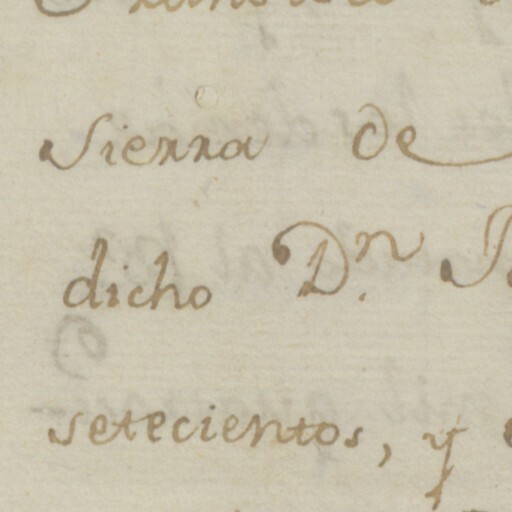 Sierra de
dicho D.n
setecientos, y